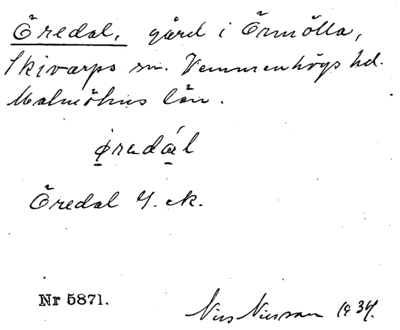 Öredal, gård i Örmölla,
Skivarps sn. Vemmenhögs hd.
Malmöhus län.
øredál
Öredal J. ek.
Nr 5871. Nils Nilsson 1934.